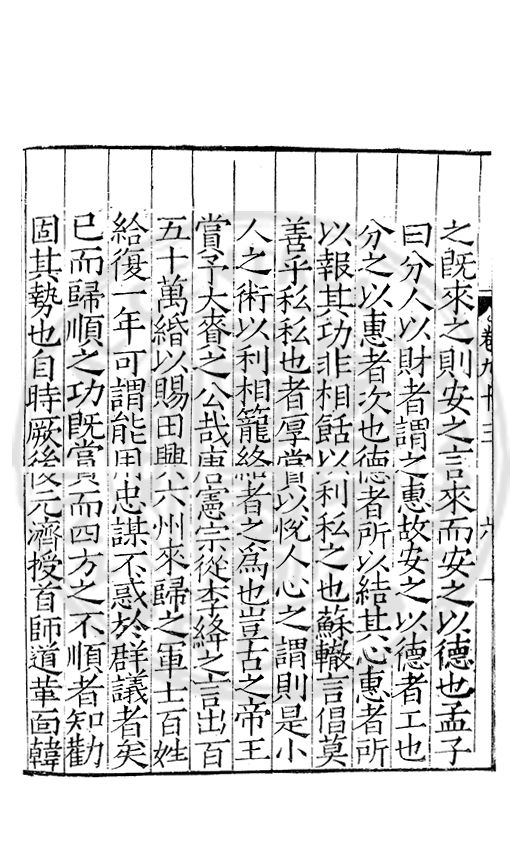 之既來之則安之言來而安之以德也孟子
曰分人以財者謂之惠故安之以德者工也
分之以惠者次也德者所以結其心惠者所
以報其功非相餂以利私之也蘇轍言倡莫
善乎私私也者厚賞以悅人心之謂則是小
人之術以利相籠絡者之爲也豈古之帝王
賞予大賚之公哉唐憲宗從李絳之言出百
五十萬緡以賜田興六州來歸之軍士百姓
給復一年可謂能用忠謀不惑於群議者矣
已而歸順之功既賞而四方之不順者知勸
固其勢也自時厥後元濟授首師道革面韓
卷九十三
六